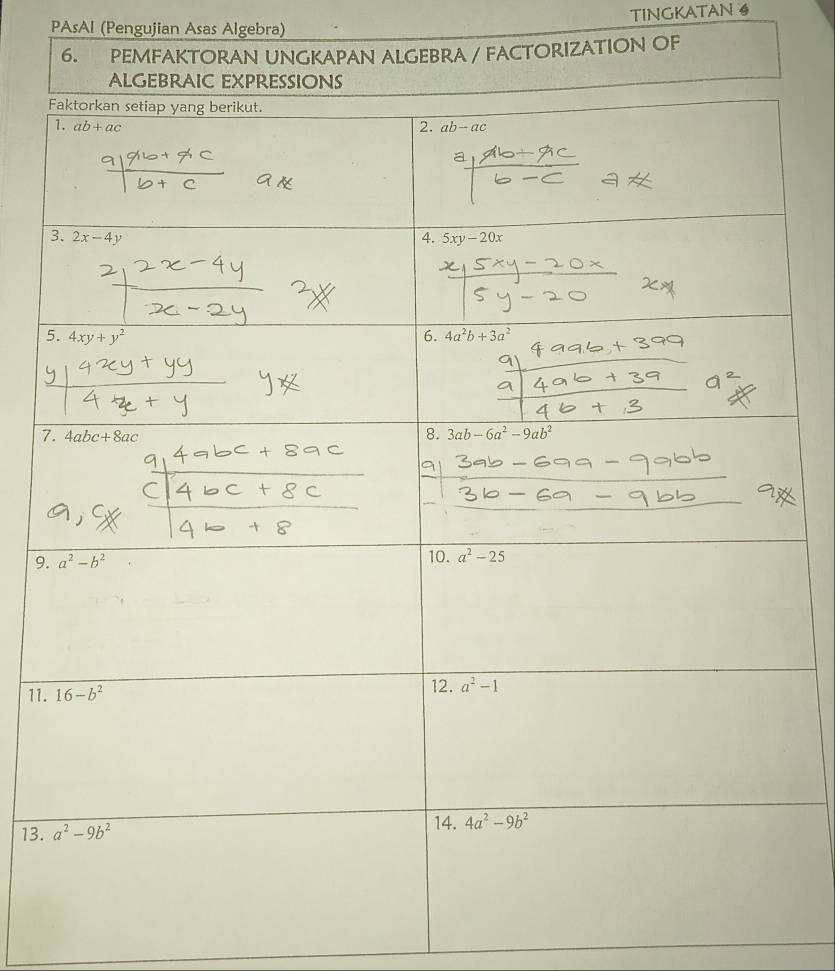 TINGKATAN 4
PAsAl (Pengujian Asas Algebra)
6. PEMFAKTORAN UNGKAPAN ALGEBRA / FACTORIZATION OF
ALGEBRAIC EXPRESSIONS
Faktorkan setiap yang berikut.
1. ab + ac
a ab + ac
b + c a
2. ab − ac
a ab − ac
b − c a
3. 2x − 4y
2 2x − 4y
x − 2y 2
4. 5xy − 20x
x 5xy − 20x
5y − 20 x
5. 4xy + y²
y 4xy + yy
4x + y y
6. 4a²b + 3a²
a 4aab + 3aa
a 4ab + 3a a²
4b + 3
7. 4abc + 8ac
a 4abc + 8ac
c 4bc + 8c
a, c 4b + 8
8. 3ab − 6a² − 9ab²
a 3ab − 6aa − 9abb
3b − 6a − 9bb a
9. a² − b²
10. a² − 25
11. 16 − b²
12. a² − 1
13. a² − 9b²
14. 4a² − 9b²